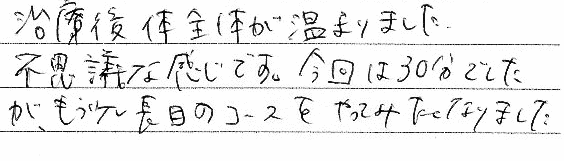 治療後体全体が温まりました。
不思議な感じです。今回は30分でした
が、もう少し長目のコースを やってみたくなりました